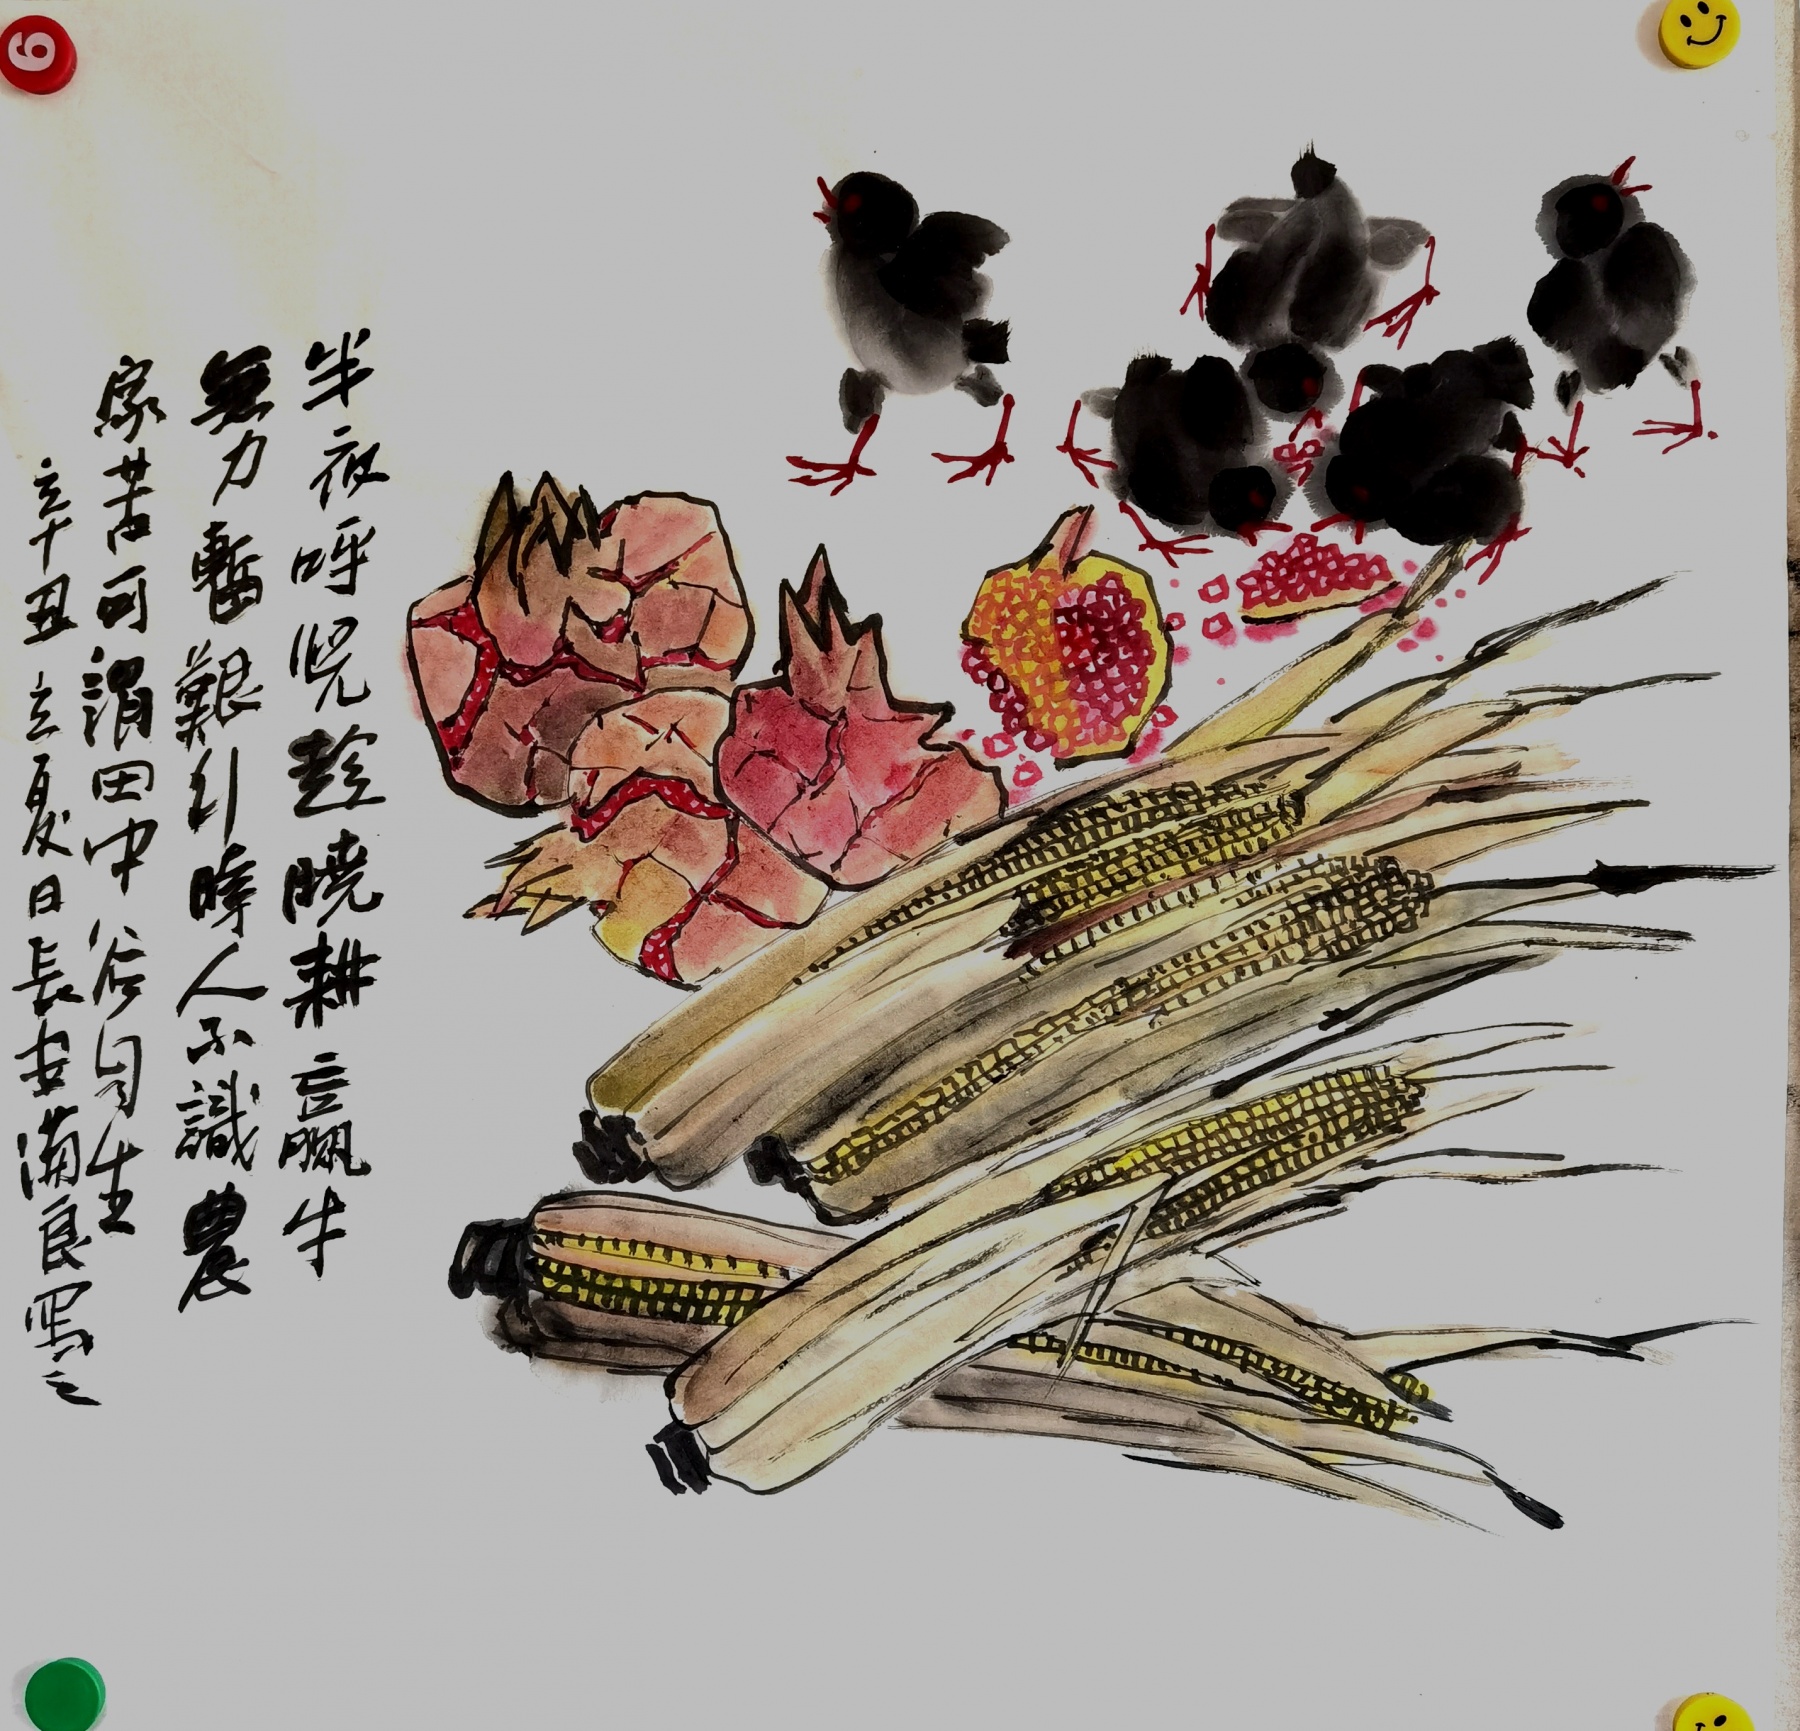 半夜呼児趁曉耕羸牛
無力暫艱行時人不識農
家苦可謂田中谷自生
辛丑立夏日長安良寫之
6